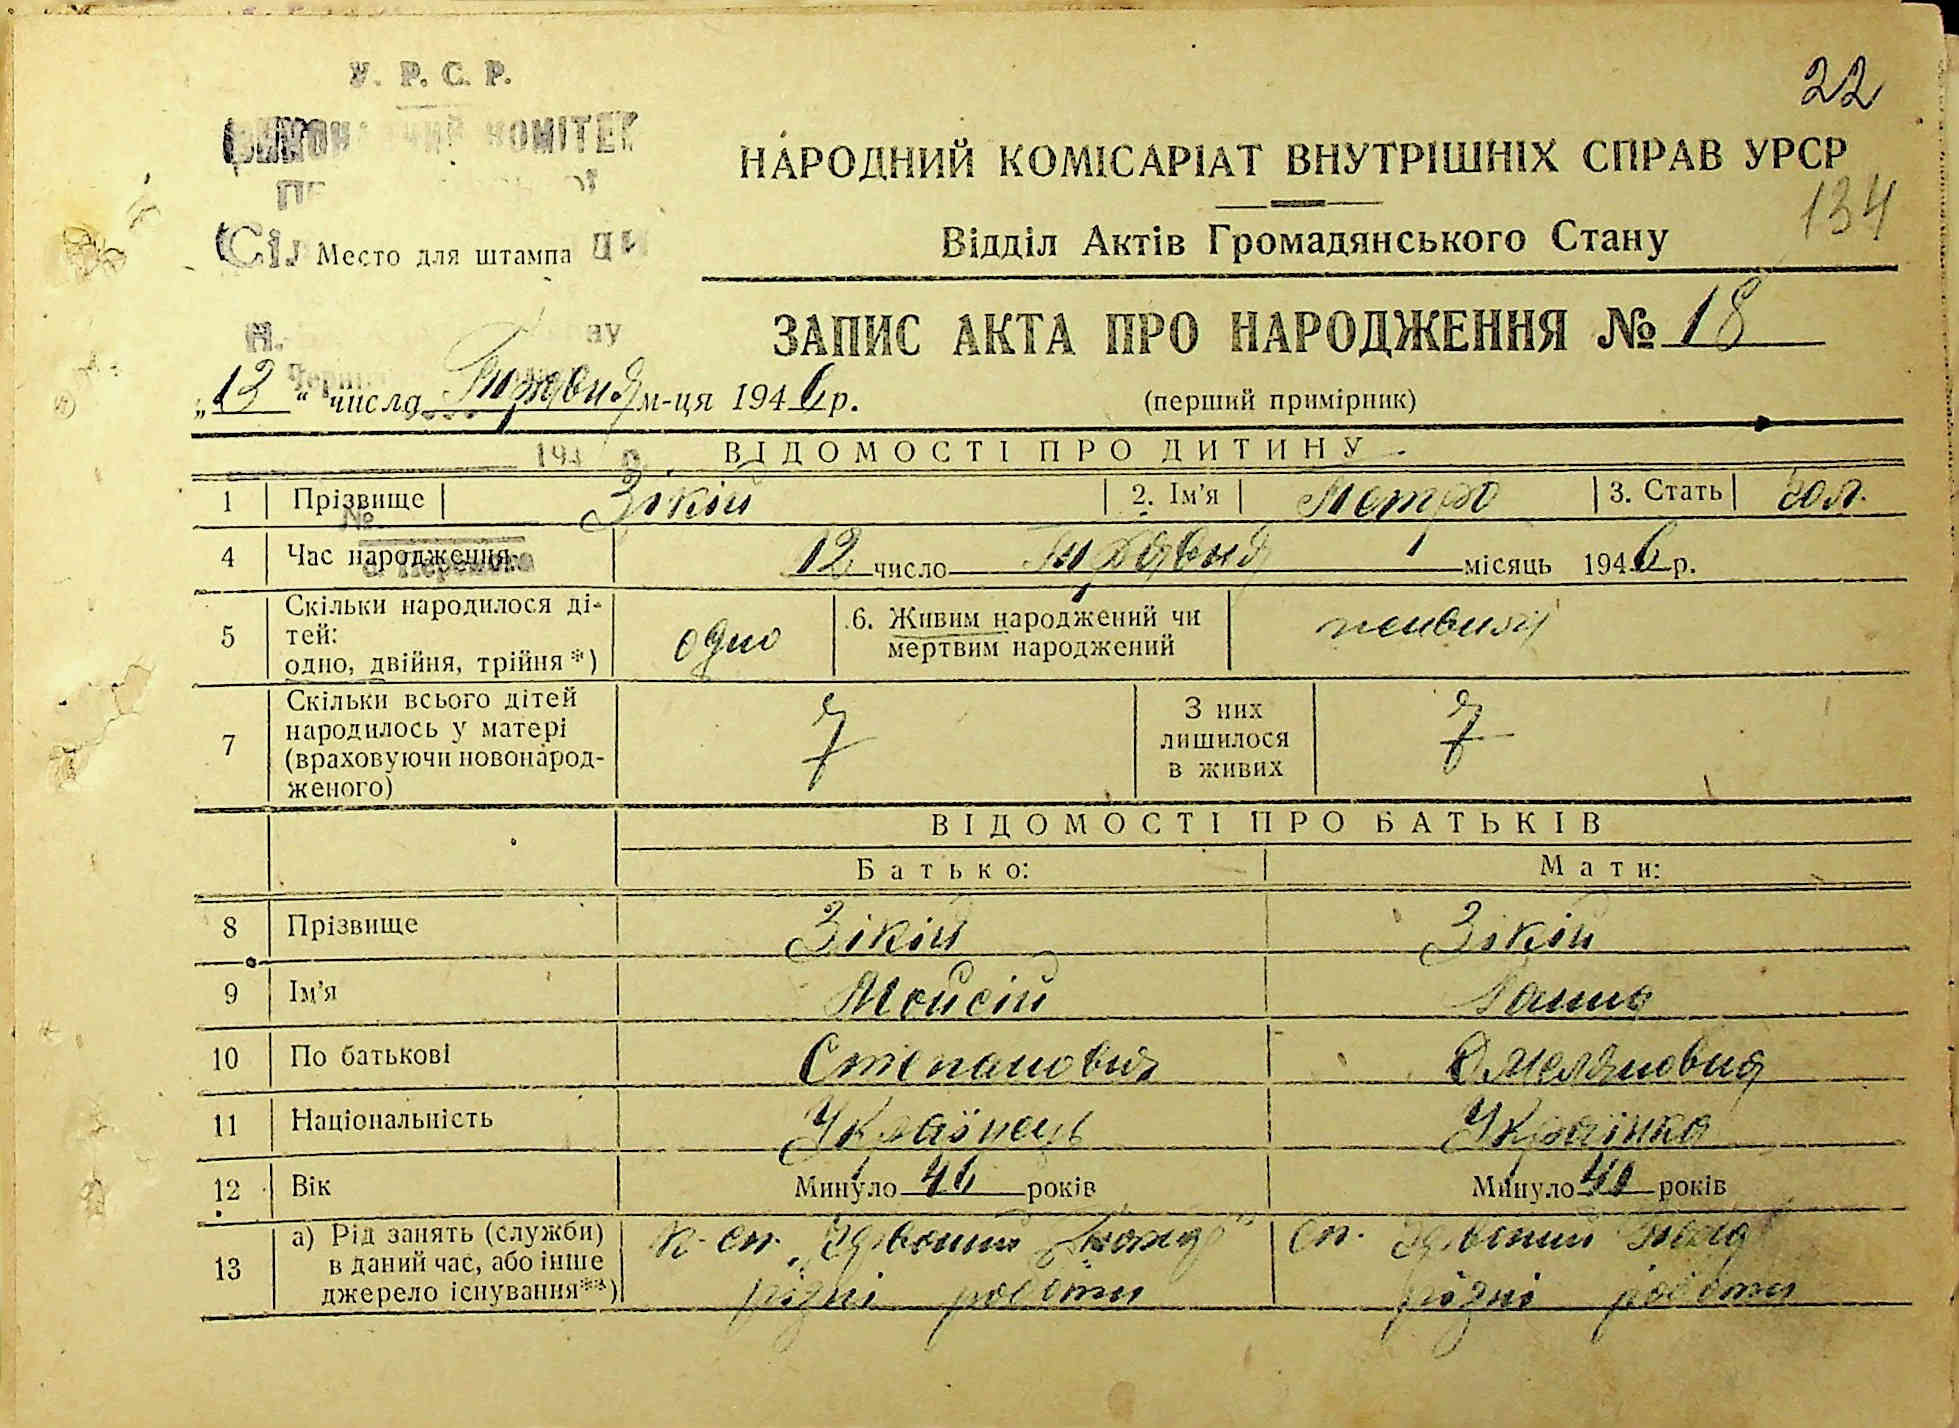 У. Р. С. Р.
22
НАРОДНИЙ КОМІСАРІАТ ВНУТРІШНІХ СПРАВ УРСР
134
Відділ Актів Громадянського Стану
Место для штампа
ЗАПИС АКТА ПРО НАРОДЖЕННЯ № 18
„13“ числа Травня м-ця 1946 р.
(перший примірник)
194 р.
ВІДОМОСТІ ПРО ДИТИНУ
1 Прізвище Зікій 2. Ім'я Петро 3. Стать чол.
№
4 Час народження 12 число Травня місяць 1946 р.
5 Скільки народилося дітей: одно, двійня, трійня*) одно 6. Живим народжений чи мертвим народжений живим
7 Скільки всього дітей народилось у матері (враховуючи новонародженого) 7 З них лишилося в живих 7
ВІДОМОСТІ ПРО БАТЬКІВ
Батько: Мати:
8 Прізвище Зікій Зікій
9 Ім'я Мойсій Ганна
10 По батькові Степанович Омеляновна
11 Національність Українець Українка
12 Вік Минуло 46 років Минуло років
13 а) Рід занять (служби) в даний час, або інше джерело існування**)
різні роботи різні роботи